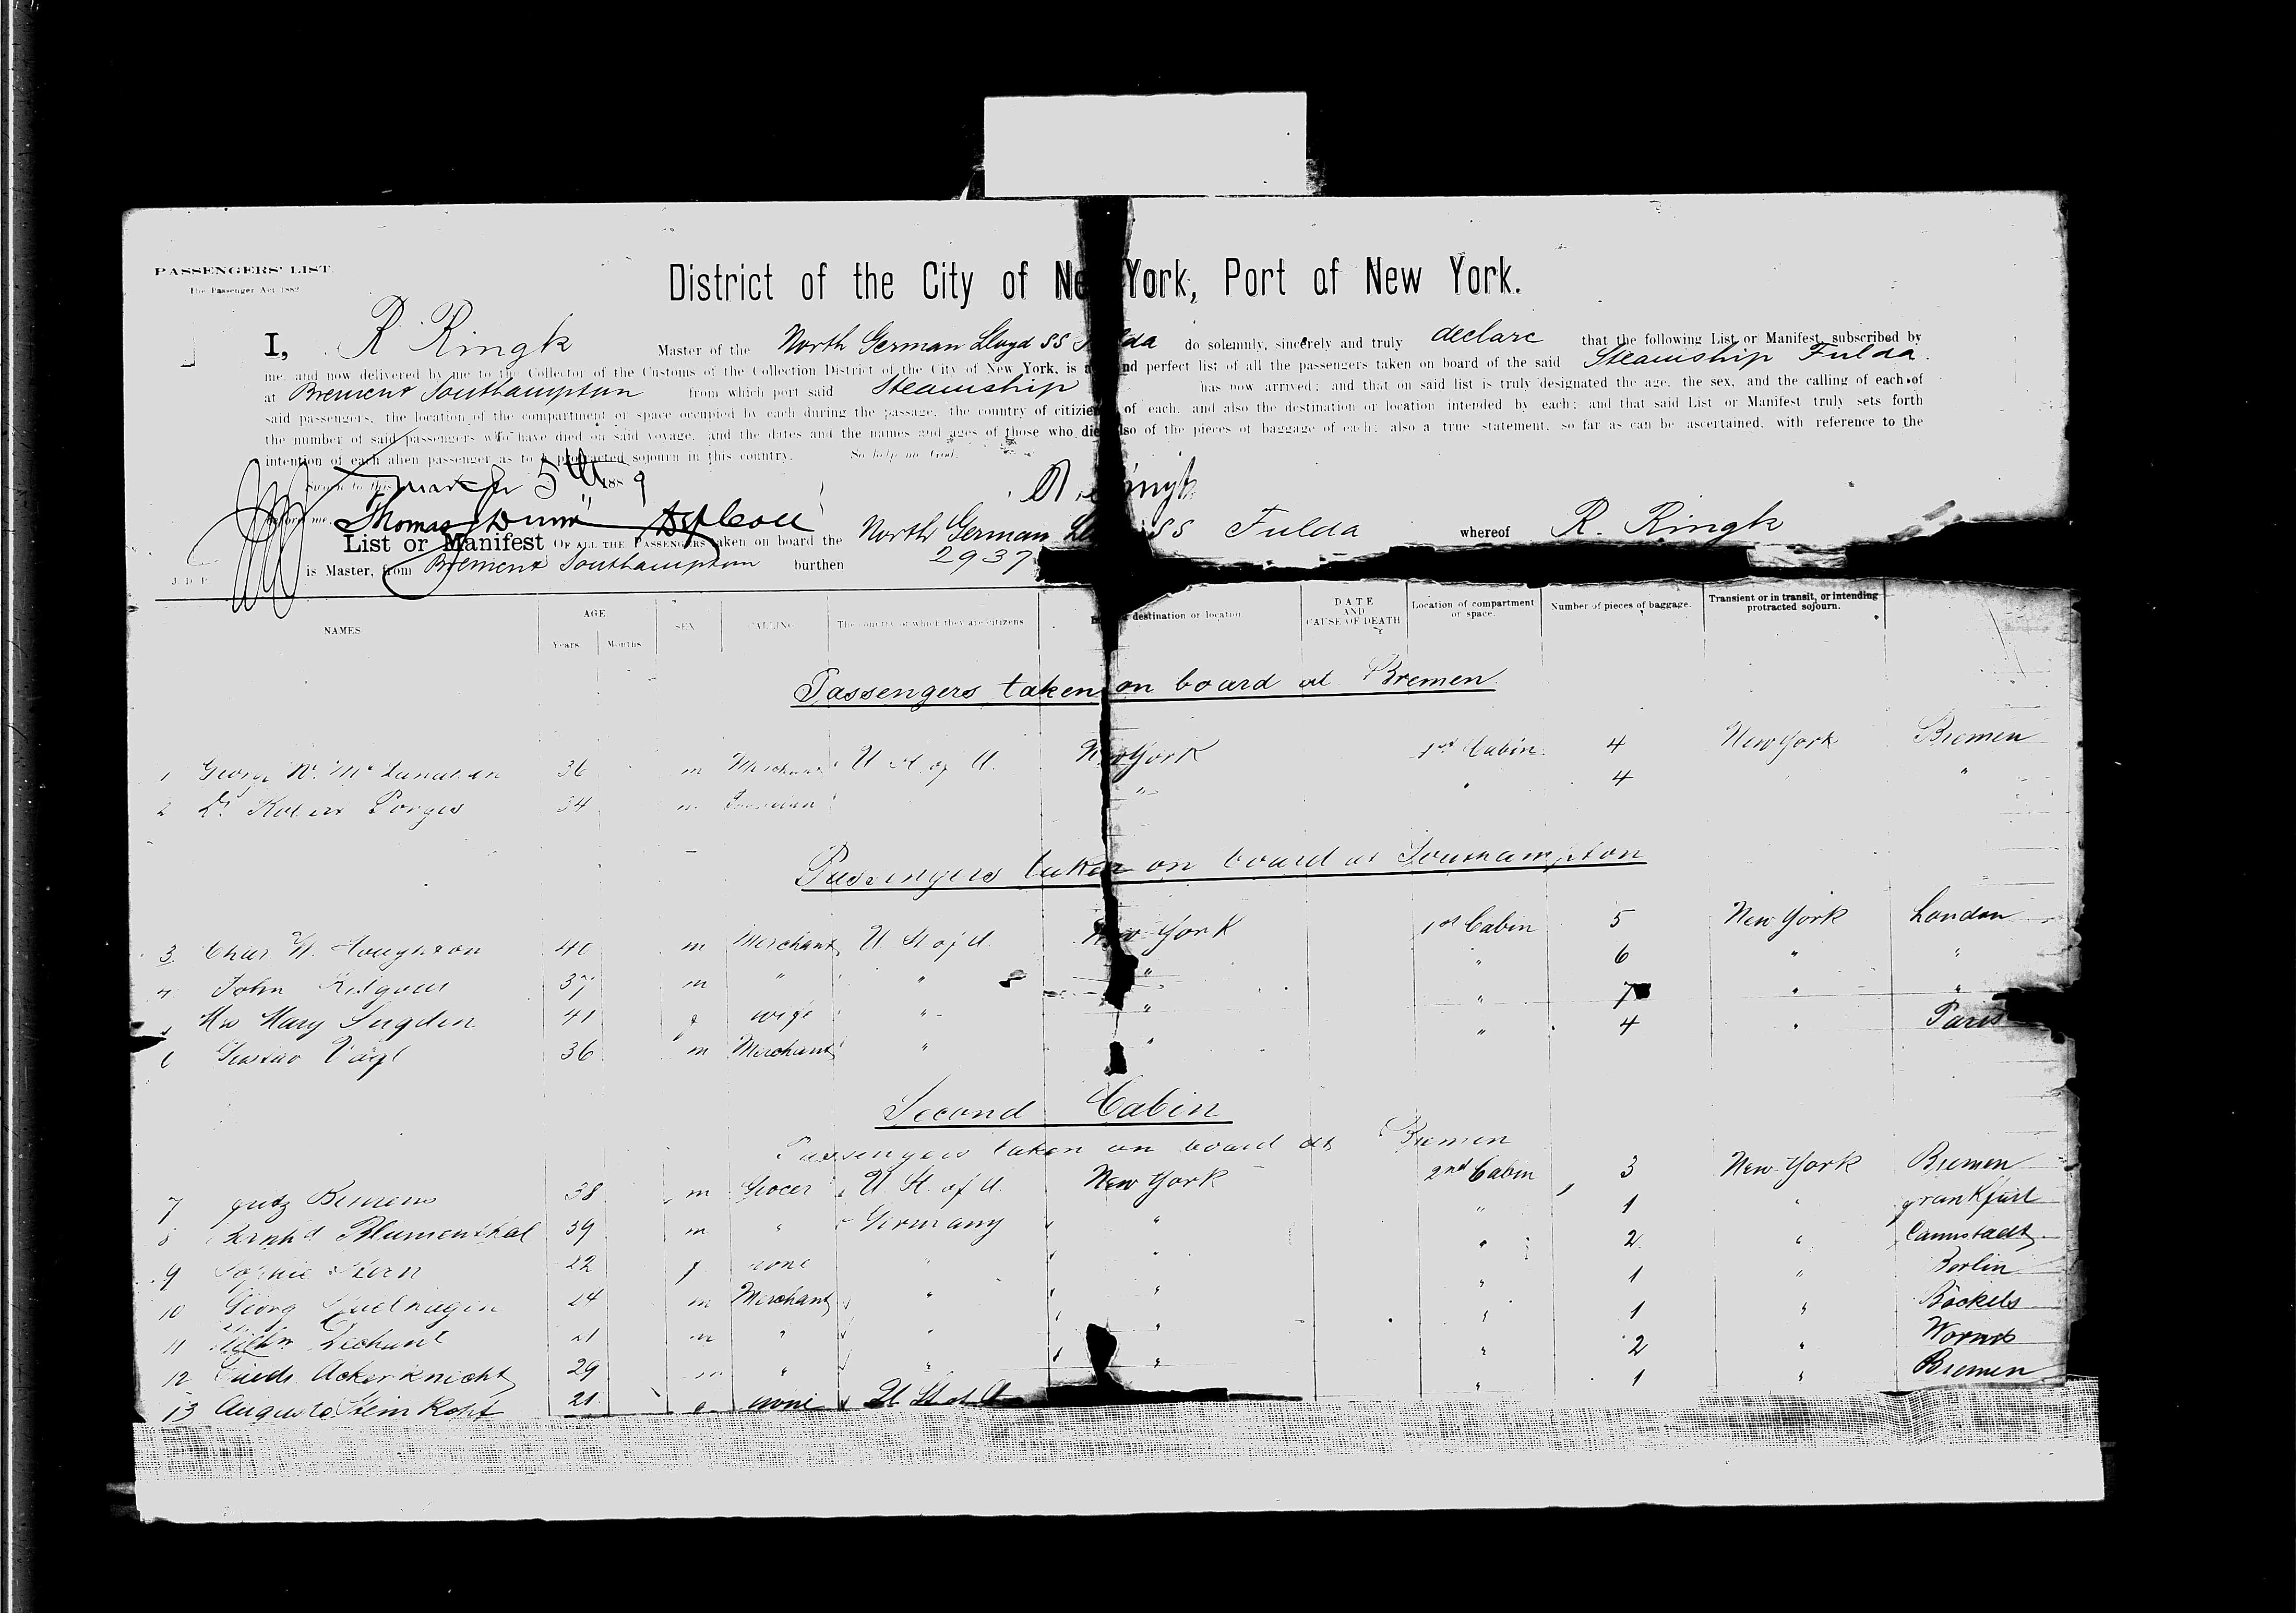 PASSENGERS' LIST.
The Passenger Act 1882
District of the City of Ne York, Port of New York.
I, R Ringk Master of the North German Lloyd SS lda do solemnly, sincerely and truly declare that the following List or Manifest, subscribed by
me, and now delivered by me to the Collector of the Customs of the Collection District of the City of New York, is a nd perfect list of all the passengers taken on board of the said Steamship Fulda.
at Bremen & Southampton from which port said Steamship has now arrived; and that on said list is truly designated the age, the sex, and the calling of each of
said passengers, the location of the compartment or space occupied by each during the passage, the country of citizen of each, and also the destination or location intended by each; and that said List or Manifest truly sets forth
the number of said passengers who have died on said voyage, and the dates and the names and ages of those who die lso of the pieces of baggage of each; also a true statement, so far as can be ascertained, with reference to the
intention of each alien passenger as to a protracted sojourn in this country. So help me God.
Sworn to this March 5th 1889
before me, Thomas Dunn Dep Coll
List or Manifest OF ALL THE PASSENGERS taken on board the North German Ll SS Fulda whereof R. Ringk
J. D. P. is Master, from Bremen & Southampton burthen 2937
NAMES AGE Years Months SEX CALLING The country of which they are citizens destination or location DATE AND CAUSE OF DEATH Location of compartment or space. Number of pieces of baggage. Transient or in transit, or intending protracted sojourn.
Passengers taken on board at Bremen
1 George W. 36 m Merchant U St. of A. New York 1st Cabin 4 New York Bremen
2 Dr. Porges 34 m " " 4 "
Passengers taken on board at Southampton
3 Chas. H. Houghton 40 m Merchant U. St. of A. New York 1st Cabin 5 New York London
4 John 37 m " " " " 6 " "
5 Mrs Mary Sugden 41 f wife " " " 7 " "
6 Gustav 36 m Merchant " " " 4 " Paris
Second Cabin
Passengers taken on board at Bremen
7 38 m Grocer U. St. of A. New York 2nd Cabin 3 New York Bremen
8 Bernhd Blumenthal 39 m " Germany " " 1 " Frankfurt
9 Sophie Stern 22 f none " " " 2 " Cannstadt
10 Georg 24 m Merchant " " " 1 " Berlin
11 Dechant 21 m " " " " 1 " Böckels
12 Friedr. Ackerknecht 29 m " " " " 2 " Worms
13 Auguste Steinkopf 21 f none U St of A " 1 " Bremen